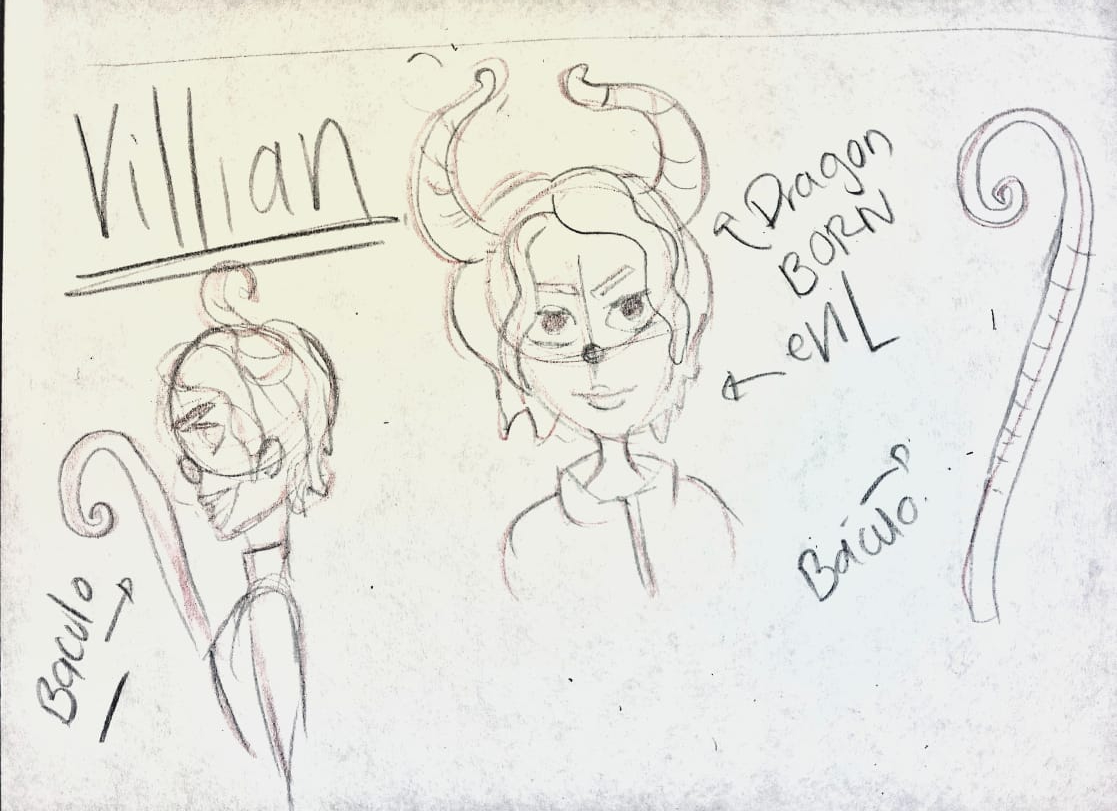 Villian
Dragon
BORN
evil
Baculo
Báculo.